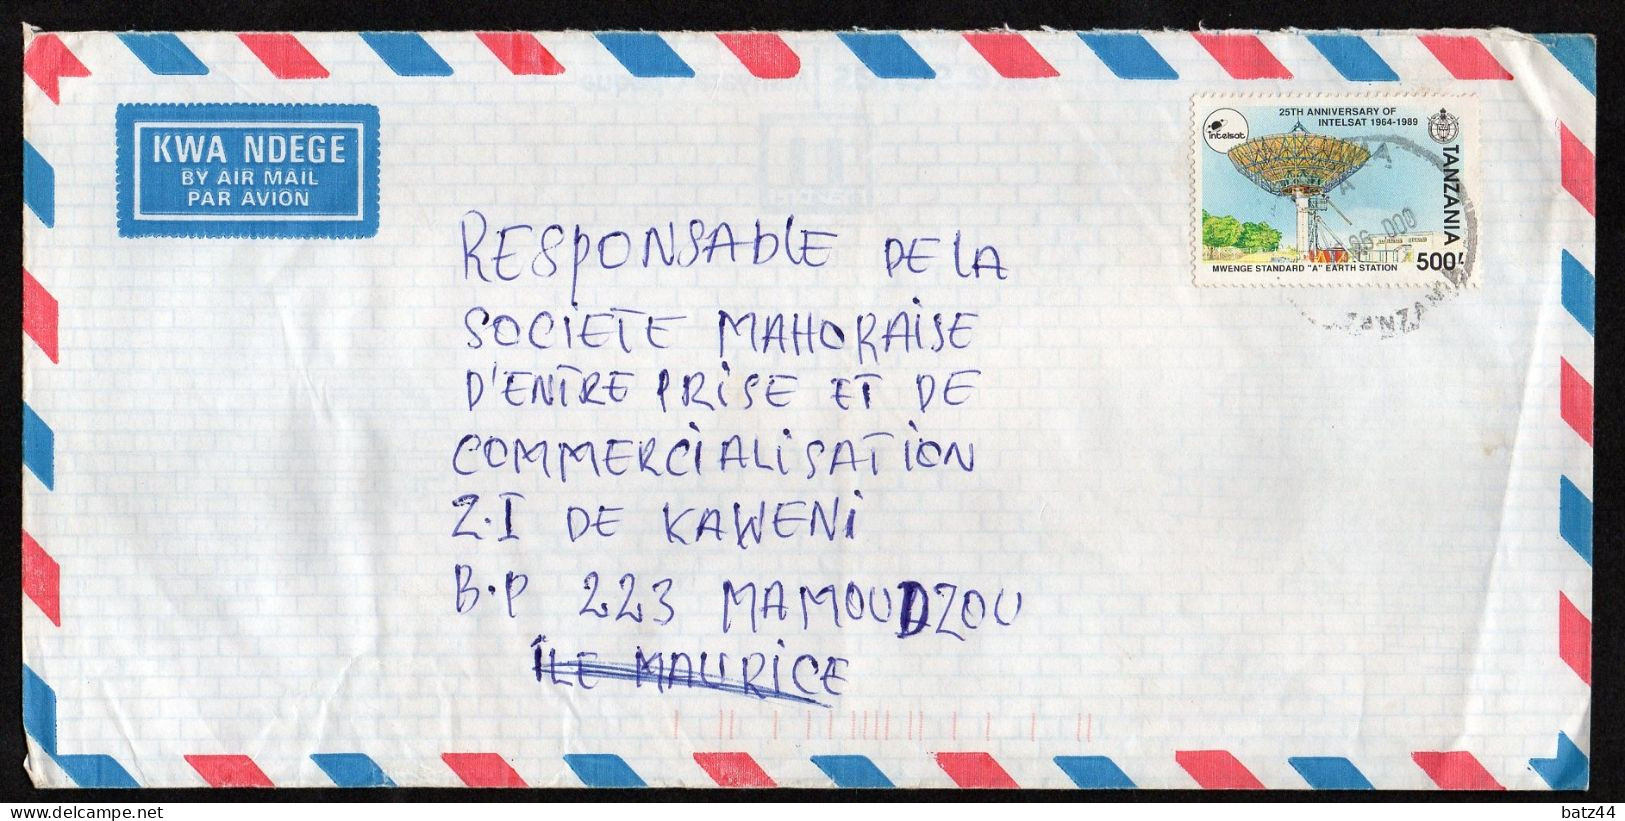 KWA NDEGE
BY AIR MAIL
PAR AVION
intelsat
25TH ANNIVERSARY OF
INTELSAT 1964-1989
TANZANIA
MWENGE STANDARD "A" EARTH STATION
500/-
000
RESPONSABLE DE LA
SOCIETE MAHORAISE
D'ENTRE PRISE ET DE
COMMERCIALISATION
Z.I DE KAWENI
B.P 223 MAMOUDZOU
ÎLE MAURICE
delcampe.net
batz44